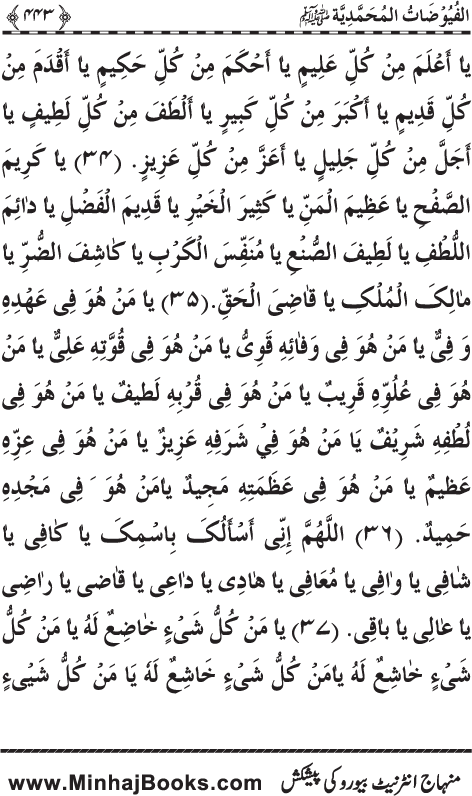 الفُيُوْضَاتُ المُحَمَّدِيَّة ﷺ ﴿۴۴۳﴾
يا أَعْلَمَ مِنْ كُلِّ عَلِيمٍ يا أَحْكَمَ مِنْ كُلِّ حَكِيمٍ يا أَقْدَمَ مِنْ
كُلِّ قَدِيمٍ يا أَكْبَرَ مِنْ كُلِّ كَبِيرٍ يا أَلْطَفَ مِنْ كُلِّ لَطِيفٍ يا
أَجَلَّ مِنْ كُلِّ جَلِيلٍ يا أَعَزَّ مِنْ كُلِّ عَزِيزٍ. (۳۴) يا كَرِيمَ
الصَّفْحِ يا عَظِيمَ الْمَنِّ يا كَثِيرَ الْخَيْرِ يا قَدِيمَ الْفَضْلِ يا دائِمَ
اللُّطْفِ يا لَطِيفَ الصُّنْعِ يا مُنَفِّسَ الْكَرْبِ يا كاشِفَ الضُّرِّ يا
مالِکَ الْمُلْکِ يا قاضِىَ الْحَقِّ.(۳۵) يا مَنْ هُوَ فِى عَهْدِهِ
وَ فِىٌّ يا مَنْ هُوَ فِى وَفائِهِ قَوِىٌّ يا مَنْ هُوَ فِى قُوَّتِهِ عَلِىٌّ يا مَنْ
هُوَ فِى عُلُوِّهِ قَرِيبٌ يا مَنْ هُوَ فِى قُرْبِهِ لَطيفٌ يا مَنْ هُوَ فِى
لُطْفِهِ شَرِيْفٌ يَا مَنْ هُوَ فِيْ شَرَفِهِ عَزِيزٌ يا مَنْ هُوَ فِى عِزِّهِ
عَظيمٌ يا مَنْ هُوَ فِى عَظَمَتِهِ مَجِيدٌ يامَنْ هُوَ َ فِى مَجْدِهِ
حَمِيدٌ. (۳۶) اللَّهُمَّ إِنِّى أَسْأَلُکَ بِاسْمِکَ يا كافِى يا
شافِى يا وافِى يا مُعَافِى يا هادِى يا داعِى يا قاضِى يا راضِى
يا عالِى يا باقِى. (۳۷) يا مَنْ كُلُّ شَىْءٍ خاضِعٌ لَهُ يا مَنْ كُلُّ
شَىْءٍ خاشِعٌ لَهُ يامَنْ كُلُّ شَىْءٍ خَاشِعٌ لَهُ يَا مَن كُلُّ شَيىءٍ
منہاج انٹرنیٹ بیورو کی پیشکش www.MinhajBooks.com